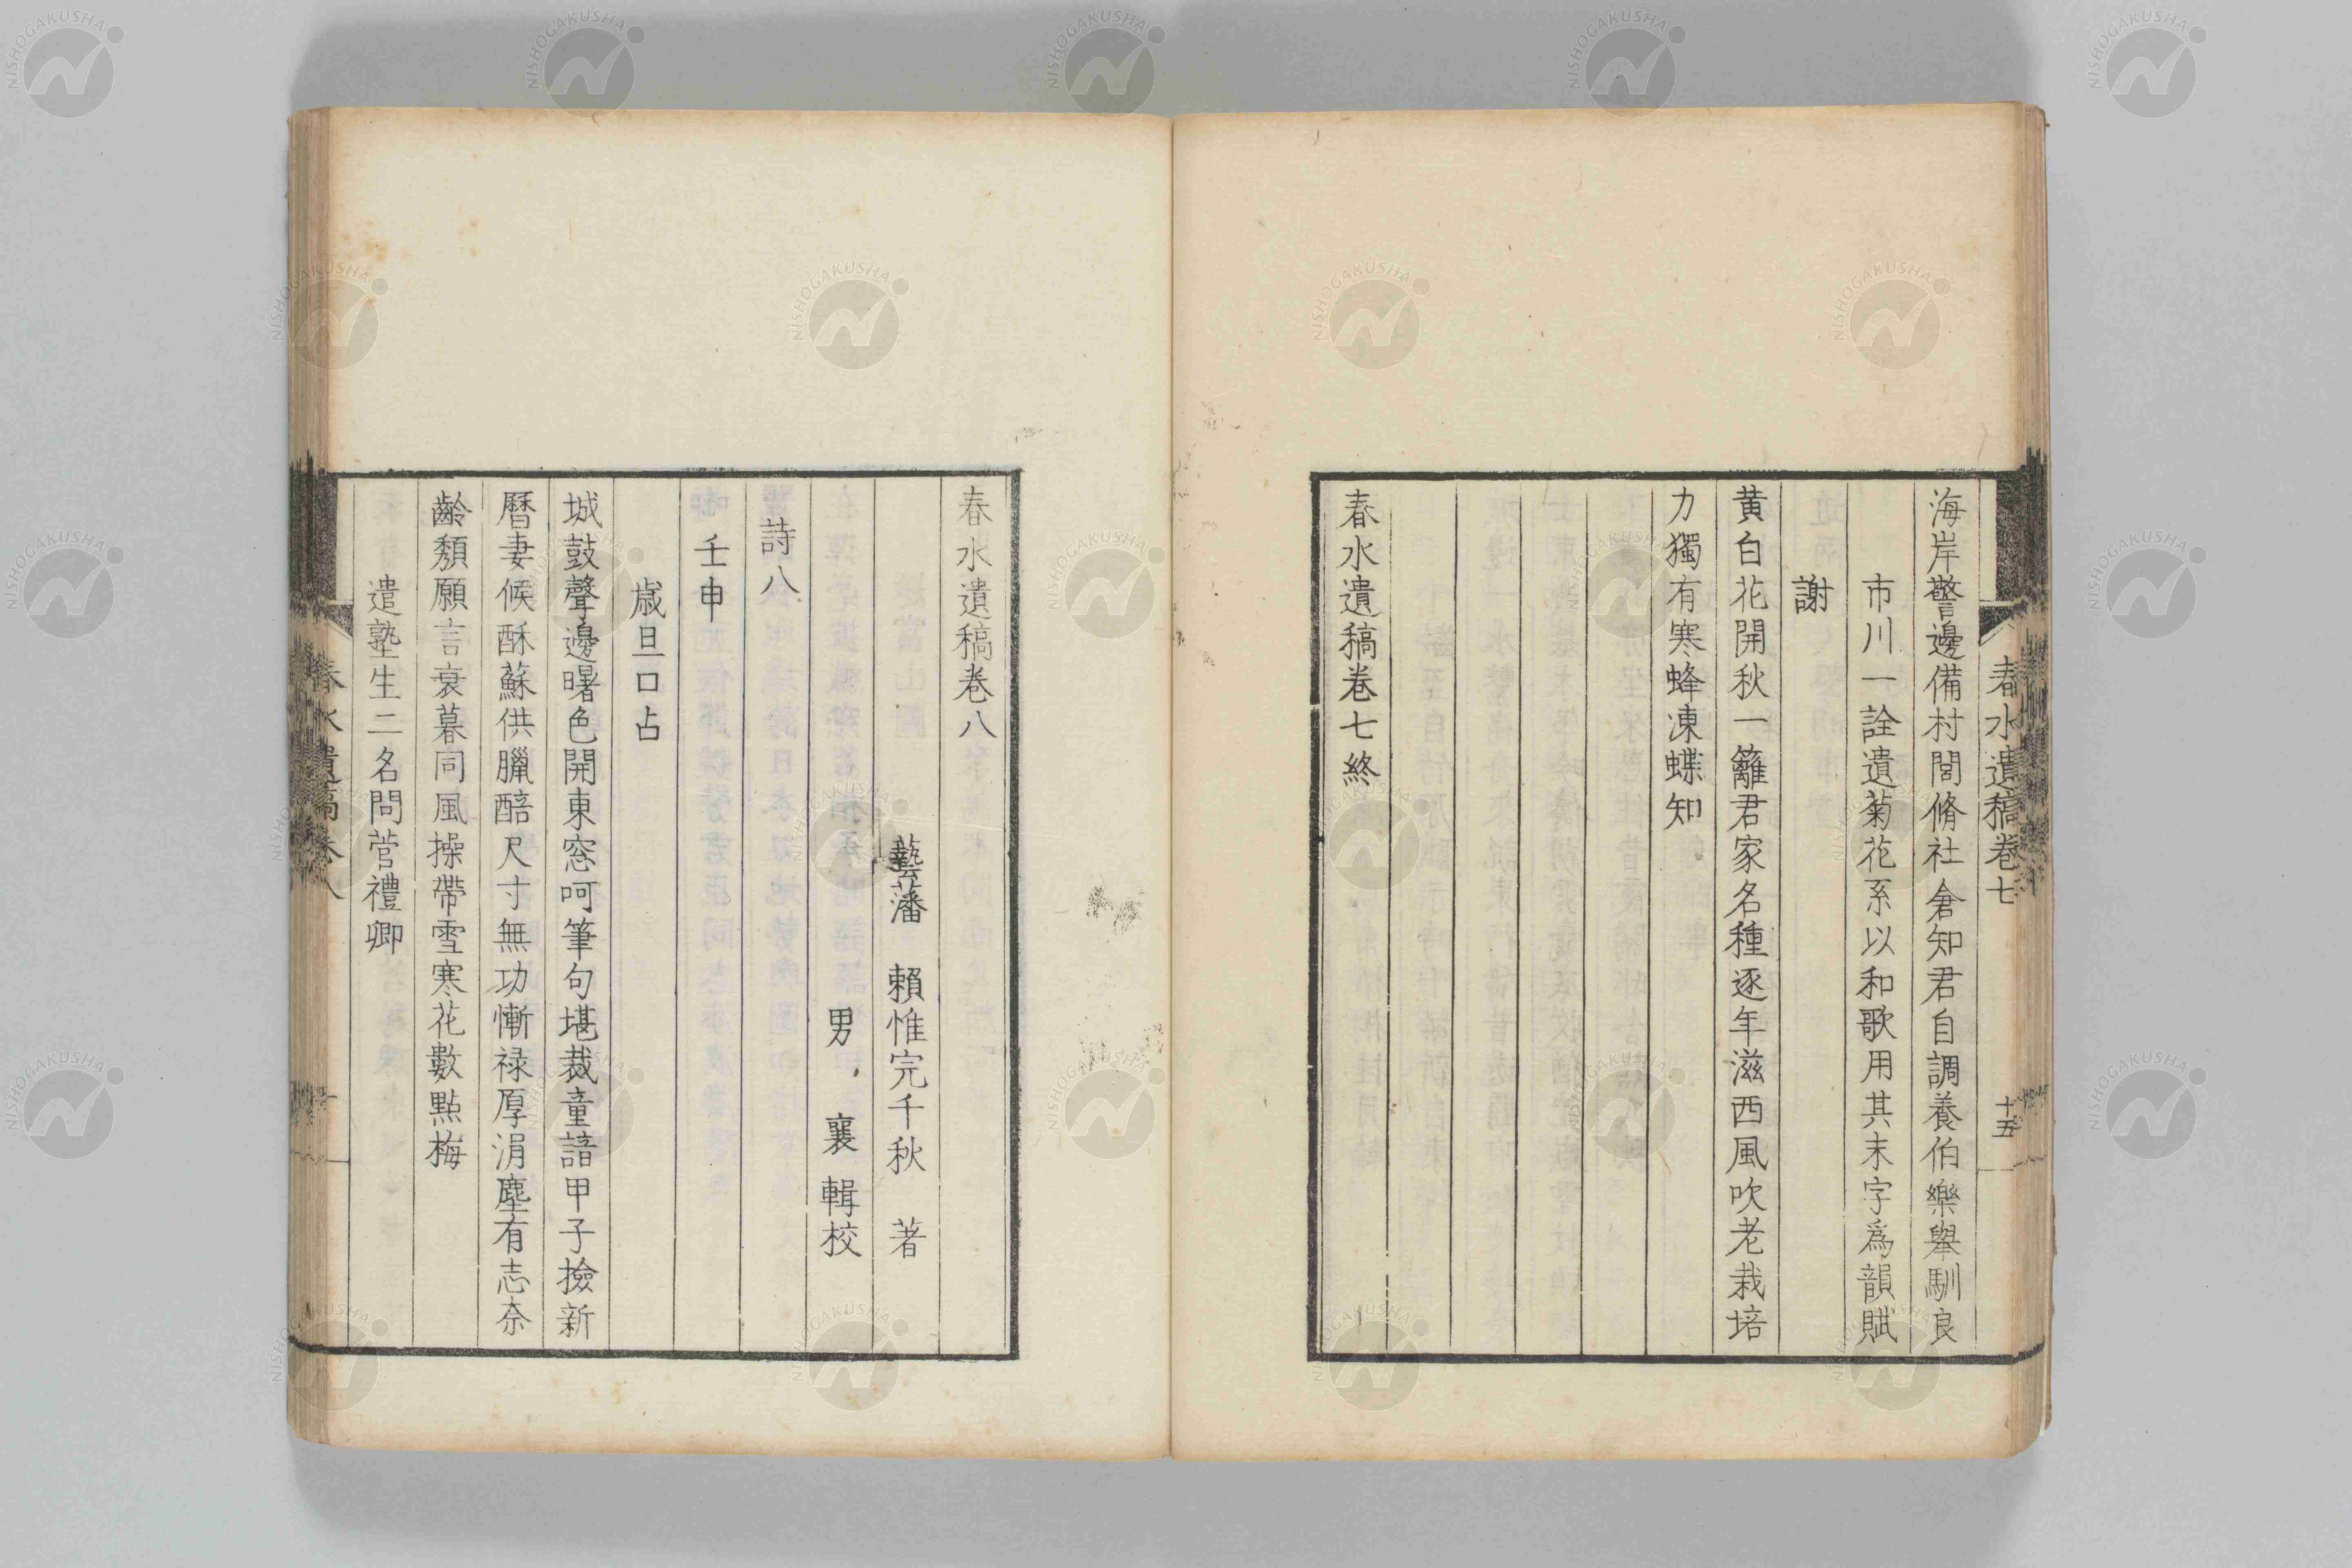 春水遺稿卷七
十五
海岸警邊備村閭脩社倉知君自調養伯樂擧馴良
市川一詮遺菊花系以和歌用其末字爲韻賦
謝
黄白花開秋一籬君家名種逐年滋西風吹老栽培
力獨有寒蜂凍蝶知
春水遺稿卷七終
春水遺稿卷八
藝藩 賴惟完千秋 著
男 襄 輯校
詩八
壬申
歲旦口占
城鼓聲邊曙色開東窓呵筆句堪裁童諳甲子撿新
曆妻候酥蘇供臘醅尺寸無功慚禄厚涓塵有志奈
齡頽願言衰暮同風操帶雪寒花數點梅
遣塾生二名問菅禮卿
春水遺稿卷八
NISHOGAKUSHA